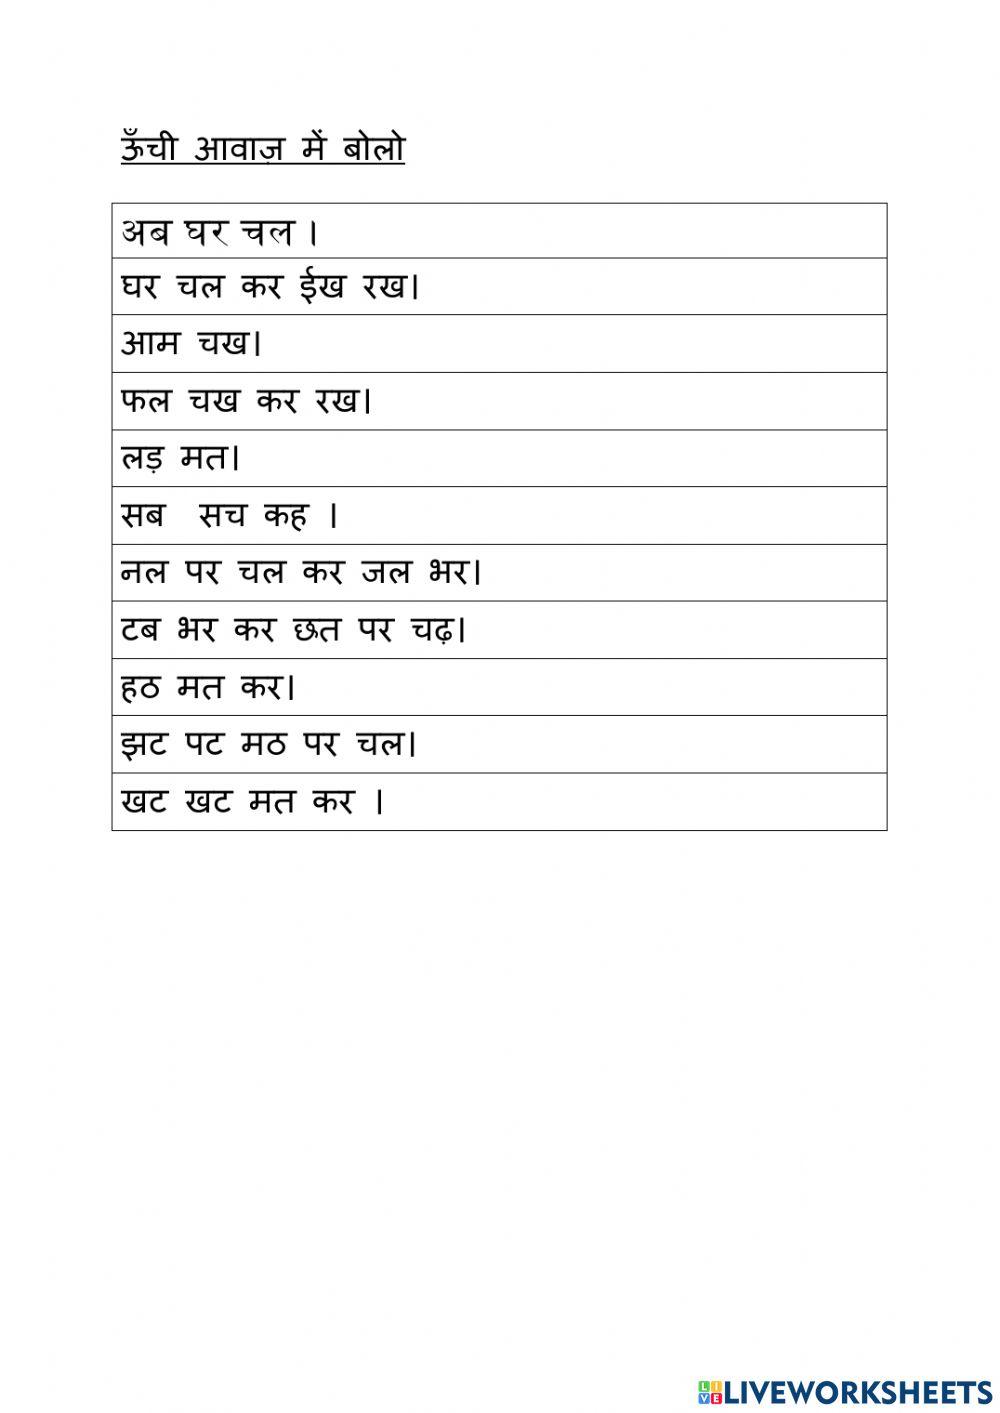 ऊँची आवाज़ में बोलो
अब घर चल ।
घर चल कर ईख रख।
आम चख।
फल चख कर रख।
लड़ मत।
सब सच कह ।
नल पर चल कर जल भर।
टब भर कर छत पर चढ़।
हठ मत कर।
झट पट मठ पर चल।
खट खट मत कर ।
LIVE LIVEWORKSHEETS